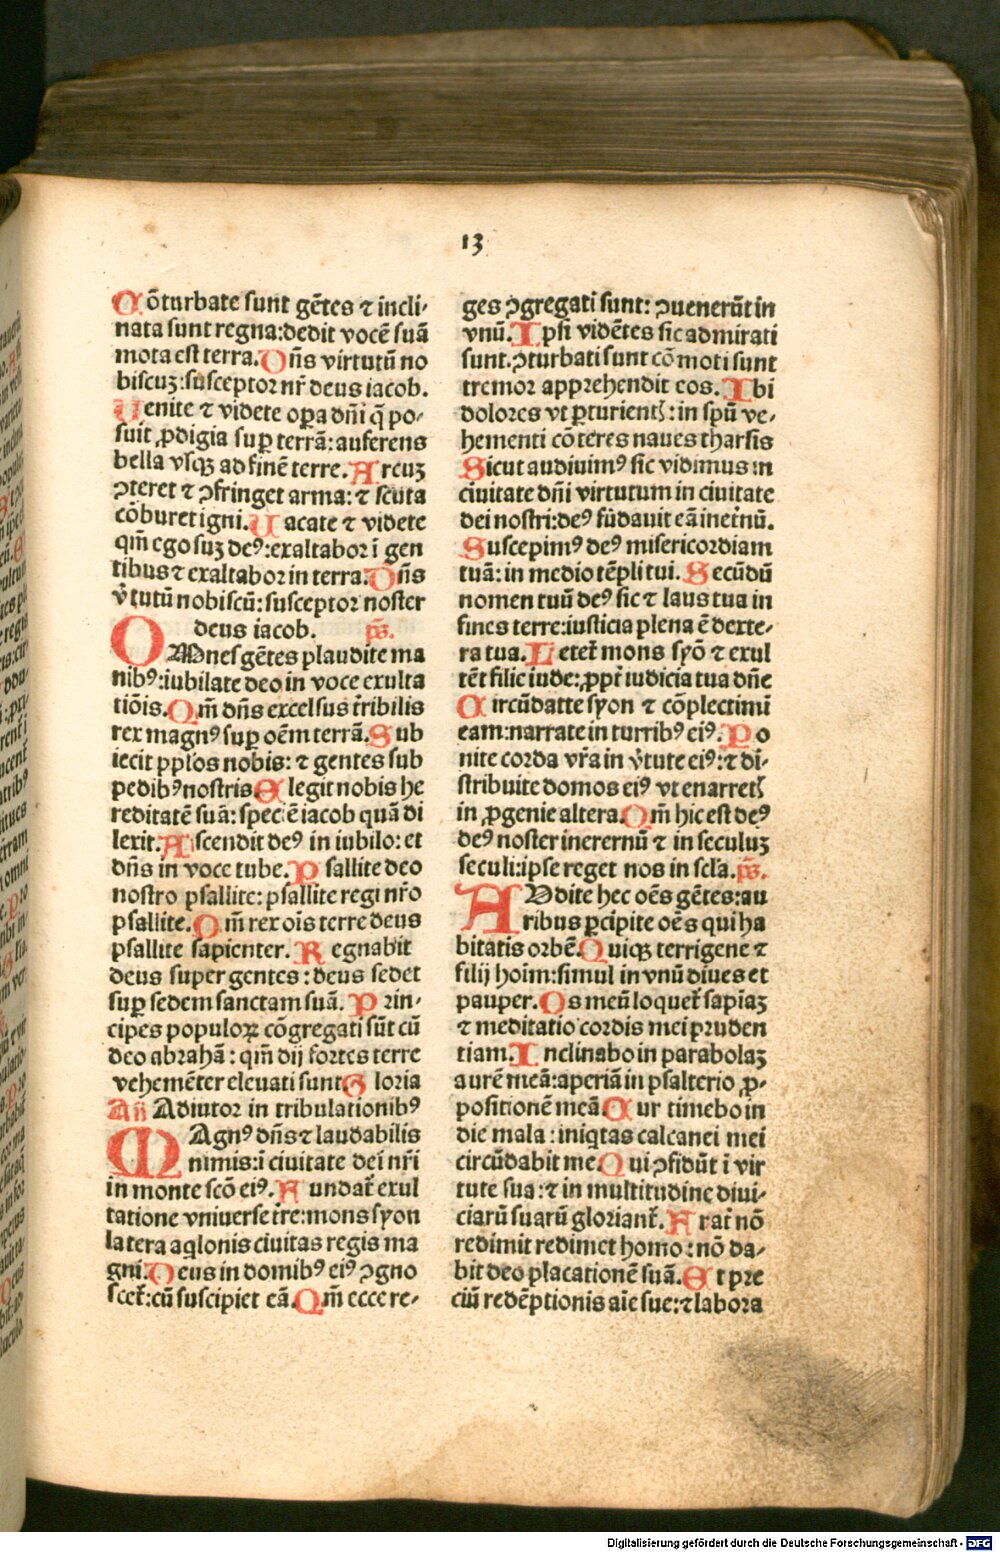 13
Cōturbate sunt gētes ⁊ incli⸗
nata sunt regna:dedit vocē suā
mota est terra.Dn̄s virtutū no
biscuꝫ:susceptor nr̄ deus iacob.
Uenite ⁊ videte oꝑa dn̄i q̄ po⸗
suit ꝓdigia suꝑ terrā: auferens
bella vsqꝫ ad finē terre.Arcuꝫ
ꝯteret ⁊ ꝯfringet arma: ⁊ scuta
cōburet igni.Uacate ⁊ videte
qm̄ ego suꝫ deꝰ:exaltabor ī gen
tibus ⁊ exaltabor in terra.Dn̄s
v̓tutū nobiscū: susceptor noster
deus iacob. ps̄.
OMnes gētes plaudite ma
nibꝰ:iubilate deo in voce exulta
tiōis.Qm̄ dn̄s excelsus tr̄ribilis
rex magnꝰ suꝑ oēm terrā.Sub
iecit pplos nobis: ⁊ gentes sub
pedibꝰ nostris.Elegit nobis he
reditatē suā: specē iacob quā di
lexit.Ascendit deꝰ in iubilo: et
dn̄s in voce tube.Psallite deo
nostro psallite: psallite regi nr̄o
psallite.Qm̄ rex oīs terre deus
psallite sapienter.Regnabit
deus super gentes: deus sedet
suꝑ sedem sanctam suā.Prin⸗
cipes populoꝝ cōgregati sūt cū
deo abrahā: qm̄ dij fortes terre
vehemēter eleuati sunt.Gloria
Añ Adiutor in tribulationibꝰ
MAgnꝰ dn̄s ⁊ laudabilis
nimis:ī ciuitate dei nr̄i
in monte scō eiꝰ.Fundat̄ exul
tatione vniuerse tr̄e:mons syon
latera aqlonis ciuitas regis ma
gni.Deus in domibꝰ eiꝰ ꝯgno
scet̄:cū suscipiet eā.Qm̄ ecce re⸗
ges ꝯgregati sunt: ꝯuenerūt in
vnū.Ipsi vidētes sic admirati
sunt.ꝯturbati sunt cōmoti sunt
tremor apprehendit eos.Ibi
dolores vt ꝑturientꝭ:in spū ve⸗
hementi cōteres naues tharsis
Sicut audiuimꝰ sic vidimus in
ciuitate dn̄i virtutum in ciuitate
dei nostri:deꝰ fūdauit eā inet̄nū.
Suscepimꝰ deꝰ misericordiam
tuā: in medio tēpli tui.Secūdū
nomen tuū deꝰ sic ⁊ laus tua in
fines terre:iusticia plena ē dexte⸗
ra tua.Letet̄ mons syō ⁊ exul
tēt filie iude: ꝓpt̄ iudicia tua dn̄e
Circūdatte syon ⁊ cōplectimī
eam:narrate in turribꝰ eiꝰ.Po
nite corda vr̄a in v̓tute eiꝰ:⁊ di⸗
stribuite domos eiꝰ vt enarretꝭ
in ꝓgenie altera.Qm̄ hic est deꝰ
deꝰ noster inerernū ⁊ in seculuꝫ
seculi:ipse reget nos in scl̄a.ps̄.
AUdite hec oēs gētes:au
ribus ꝑcipite oēs qui ha
bitatis orbē.Quiqꝫ terrigene ⁊
filij hoīm:simul in vnū diues et
pauper.Os meū loquet̄ sapīaꝫ
⁊ meditatio cordis mei pruden
tiam.Inclinabo in parabolaꝫ
aurē meā:aperiā in psalterio ꝓ⸗
positionē meā.Cur timebo in
die mala: iniqtas calcanei mei
circūdabit me.Qui ꝯfidūt ī vir
tute sua:⁊ in multitudine diui⸗
ciarū suarū gloriant̄.Frat̄ nō
redimit redimet homo: nō da⸗
bit deo placationē suā.Et pre
ciū redēptionis aīe sue:⁊ labora
Digitalisierung gefördert durch die Deutsche Forschungsgemeinschaft - DFG